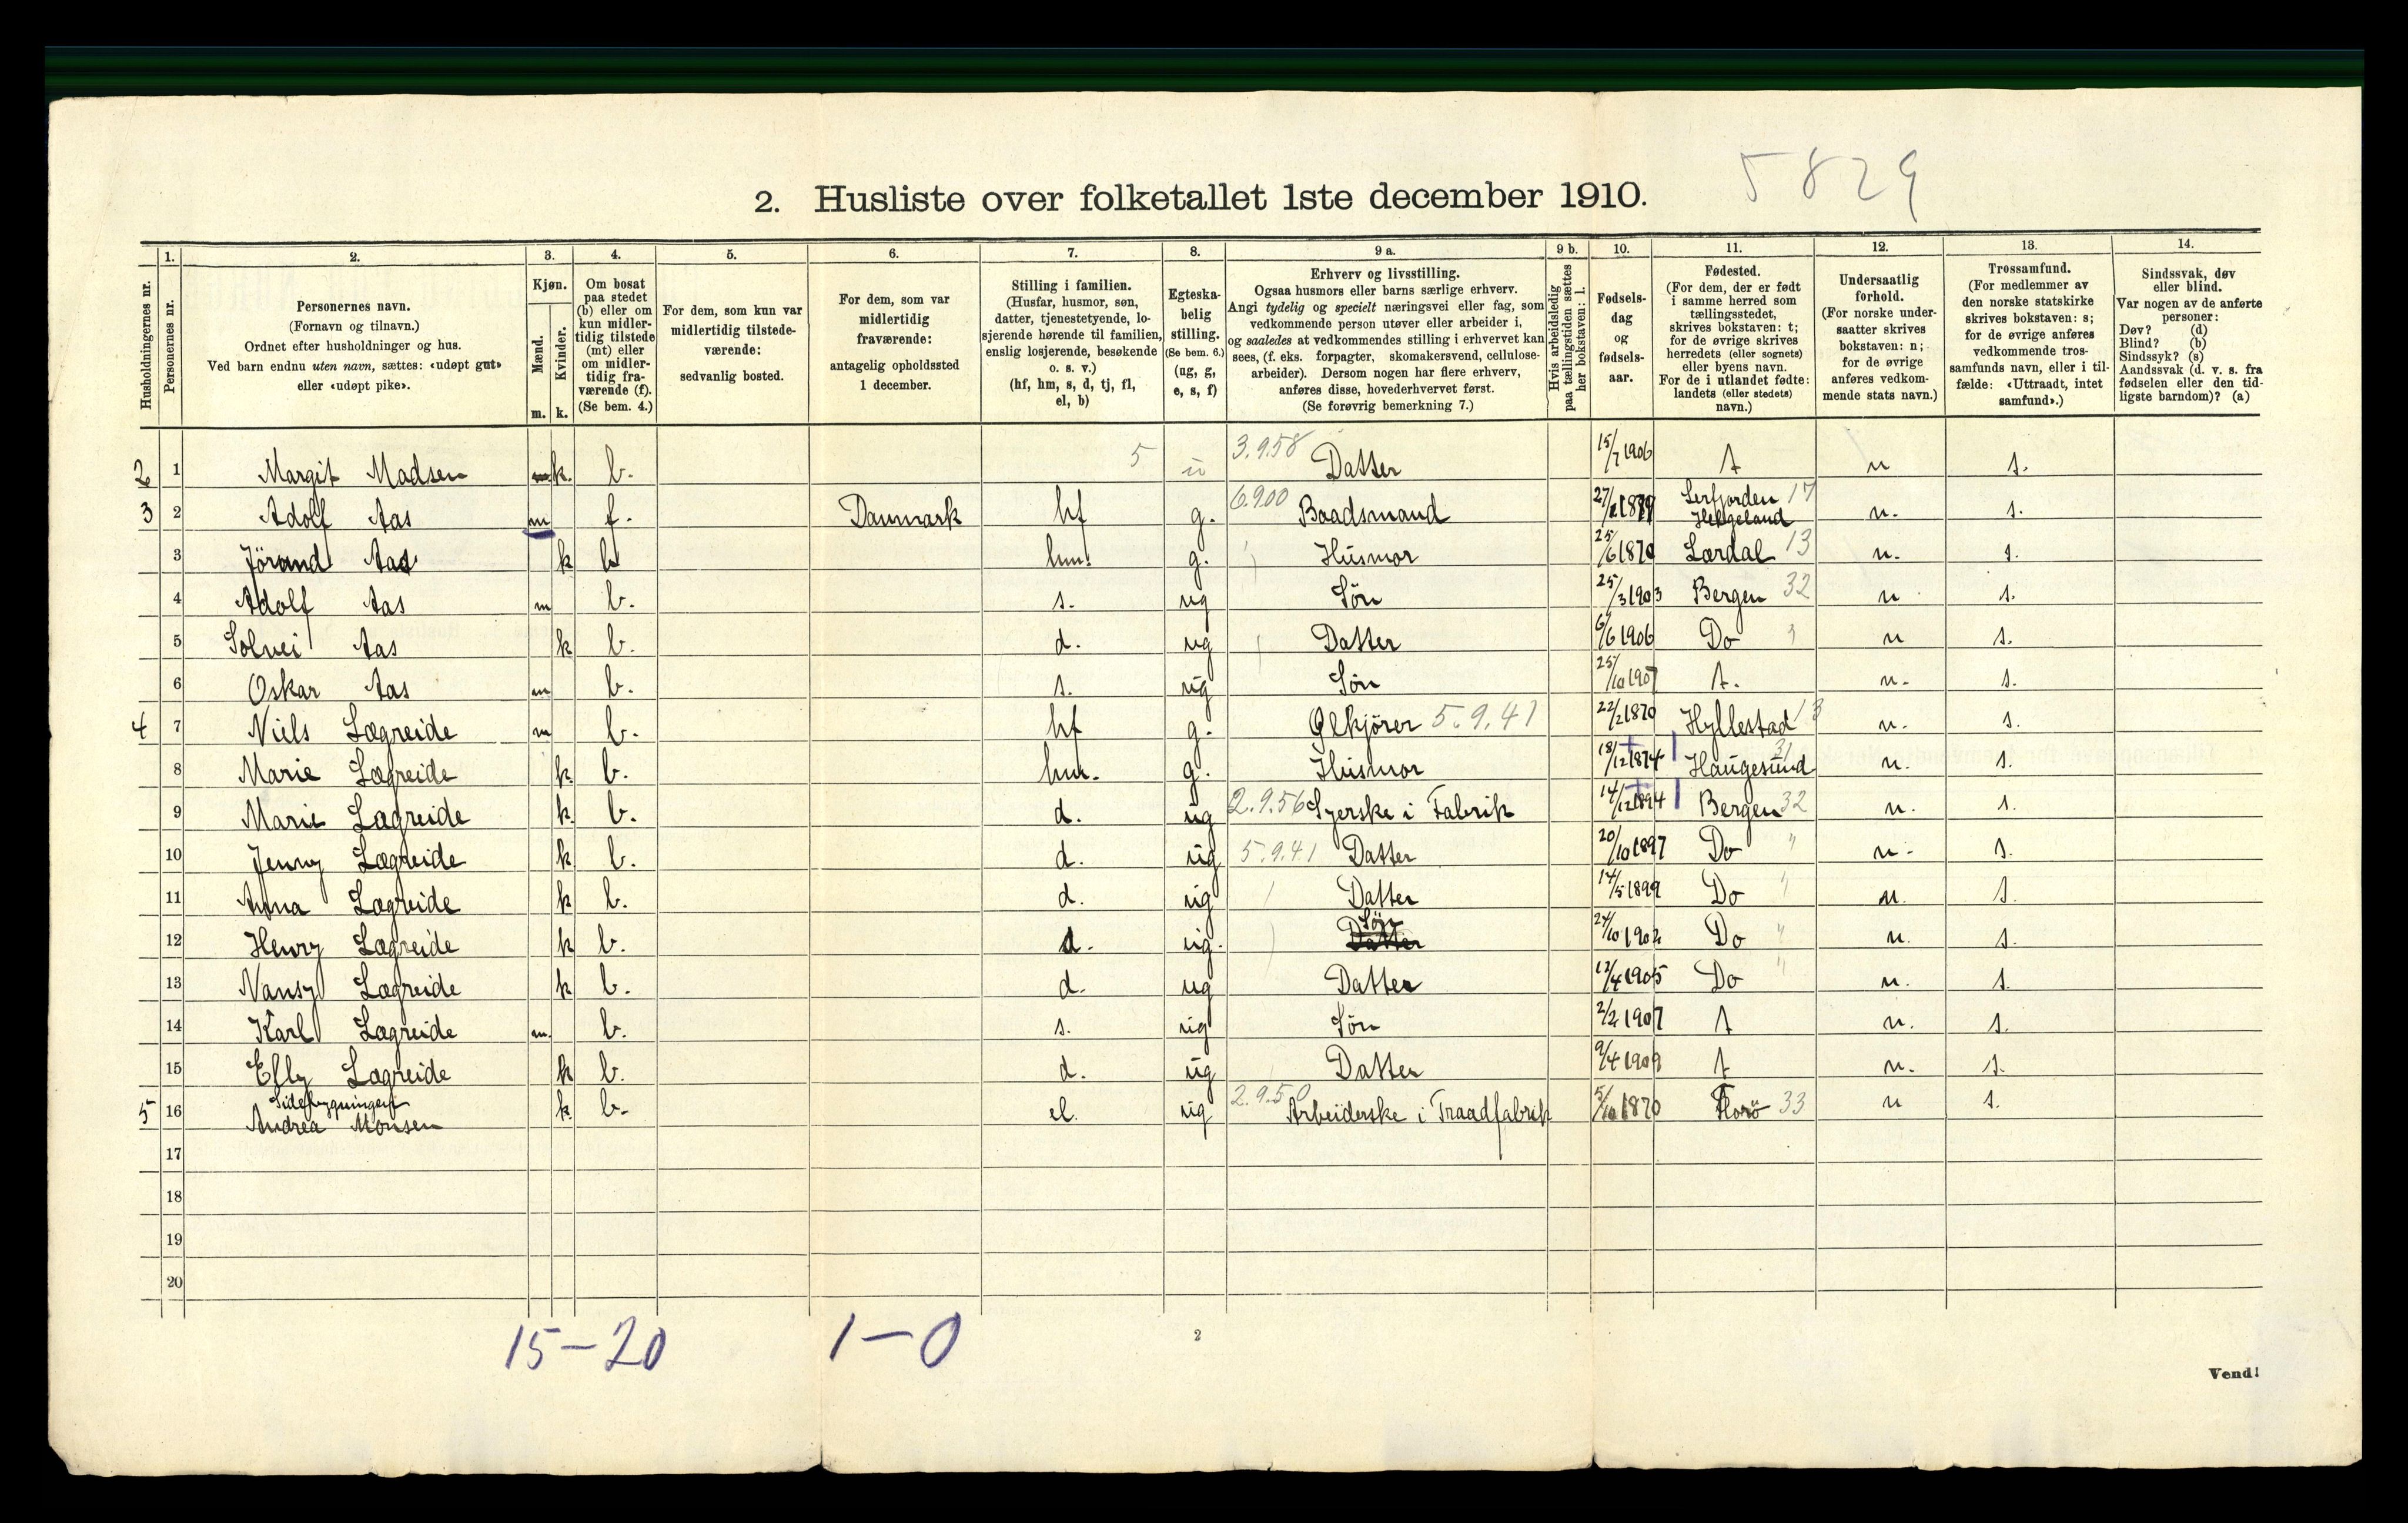 5829
2. Husliste over folketallet 1ste december 1910.
Husholdningernes nr.
1. Personernes nr.
2. Personernes navn.
(Fornavn og tilnavn.)
Ordnet efter husholdninger og hus.
Ved barn endnu uten navn, sættes: «udøpt gut»
eller «udøpt pike».
3. Kjøn.
Mænd. Kvinder.
m. k.
4. Om bosat
paa stedet
(b) eller om
kun midler-
tidig tilstede
(mt) eller
om midler-
tidig fra-
værende (f).
(Se bem. 4.)
5. For dem, som kun var
midlertidig tilstede-
værende:
sedvanlig bosted.
6. For dem, som var
midlertidig
fraværende:
antagelig opholdssted
1 december.
7. Stilling i familien.
(Husfar, husmor, søn,
datter, tjenestetyende, lo-
sjerende hørende til familien,
enslig losjerende, besøkende
o. s. v.)
(hf, hm, s, d, tj, fl,
el, b)
8. Egteska-
belig
stilling.
(Se bem. 6.)
(ug, g,
e, s, f)
9 a. Erhverv og livsstilling.
Ogsaa husmors eller barns særlige erhverv.
Angi tydelig og specielt næringsvei eller fag, som
vedkommende person utøver eller arbeider i,
og saaledes at vedkommendes stilling i erhvervet kan
sees, (f. eks. forpagter, skomakersvend, cellulose-
arbeider). Dersom nogen har flere erhverv,
anføres disse, hovederhvervet først.
(Se forøvrig bemerkning 7.)
9 b. Hvis arbeidsledig
paa tællingstiden sættes
her bokstaven: l.
10. Fødsels-
dag
og
fødsels-
aar.
11. Fødested.
(For dem, der er født
i samme herred som
tællingsstedet,
skrives bokstaven: t;
for de øvrige skrives
herredets (eller sognets)
eller byens navn.
For de i utlandet fødte:
landets (eller stedets)
navn.)
12. Undersaatlig
forhold.
(For norske under-
saatter skrives
bokstaven: n;
for de øvrige
anføres vedkom-
mende stats navn.)
13. Trossamfund.
(For medlemmer av
den norske statskirke
skrives bokstaven: s;
for de øvrige anføres
vedkommende tros-
samfunds navn, eller i til-
fælde: «Uttraadt, intet
samfund».)
14. Sindssvak, døv
eller blind.
Var nogen av de anførte
personer:
Døv? (d)
Blind? (b)
Sindssyk? (s)
Aandssvak (d. v. s. fra
fødselen eller den tid-
ligste barndom)? (a)
2 1 Margit Madsen k. b. 5 3.9.58 Datter 15/7 1906 t n s.
3 2 Adolf Aas m f. Danmark hf g. 6.900 Baadsmand Helgeland 17 n. s.
3 Jörand Aas k b hm. g. Husmor 25/6 1870 Lærdal 13 n. s.
4 Adolf Aas m b. s. ug Søn 25/3 1903 Bergen 32 n s.
5 Solvei Aas k b. d. ug Datter 6/6 1906 Do n s.
6 Oskar Aas m b. s. ug Søn 25/10 1907 t. n. s.
4 7 Niels Lægreide m b. hf g. Ølkjører 5.9.41 22/2 1870 Hyllestad 13 n. s.
8 Marie Lægreide k. b. hm. g. Husmor 18/12 1874 Haugesund 31 n. s.
9 Marie Lægreide k. b. d. ug 2.9.56 Syerske i Fabrik 14/12 1894 Bergen 32 n. s.
10 Jenny Lægreide k b. d. ug 5.9.41 Datter 20/10 1897 Do " n. s.
11 Anna Lægreide k b. d. ug Datter 14/5 1899 Do " n. s.
12 Henry Lægreide k b. d. ug. Datter Søn 24/10 1902 Do " n. s.
13 Nansy Lægreide k b. d. ug Datter 12/4 1905 Do " n. s.
14 Karl Lægreide m. b. s. ug Søn 2/2 1907 t n. s.
15 Elly Lægreide k b. d. ug Datter 9/4 1909 t n. s.
Sidebygningen
5 16 Andrea Monsen k. b. el. ug 2.9.50 Arbeiderske i Traadfabrik 5/10 1870 Florö 33 n s.
17
18
19
20
15-20 1-0
2
Vend!